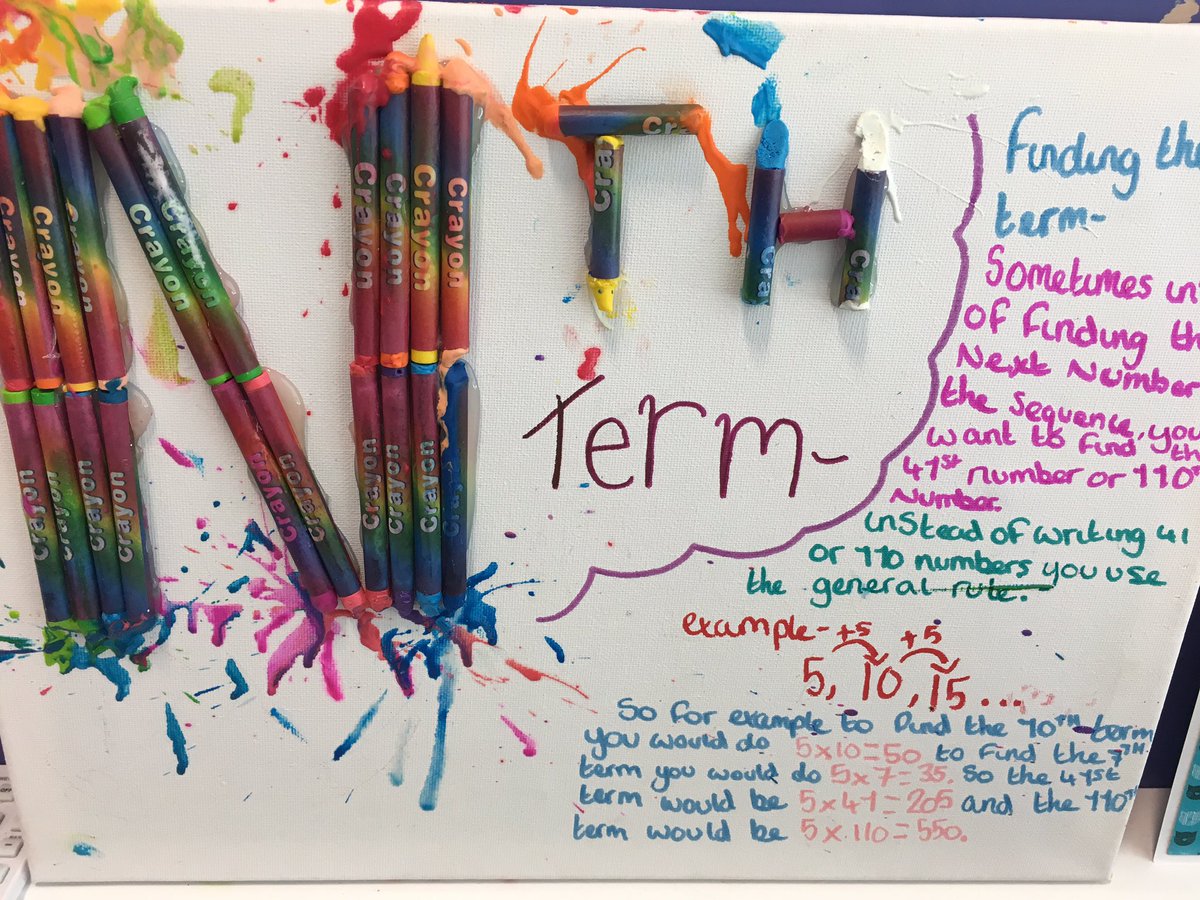 NTH
Term-
Finding the
term-
Sometimes ins
of finding th
Next Number
the sequence, you
want to find th
41st number or 110th
Number.
instead of writing 41
or 110 numbers you use
the general rule.
example- +5 +5
5, 10, 15...
So for example to find the 10TH term
you would do 5x10=50, to find the 7TH
term you would do 5x7=35. So the 41st
term would be 5x41=205 and the 110th
term would be 5x110=550.
Crayon Crayon Crayon Crayon Crayon Crayon Crayon Crayon Crayon Crayon
Crayon Crayon Crayon Crayon Crayon Crayon Crayon Crayon Crayon Crayon
Cra
Cra
Cra
Cra